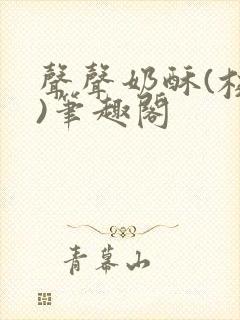 聲聲奶酥(校
)筆趣閣
青幕山